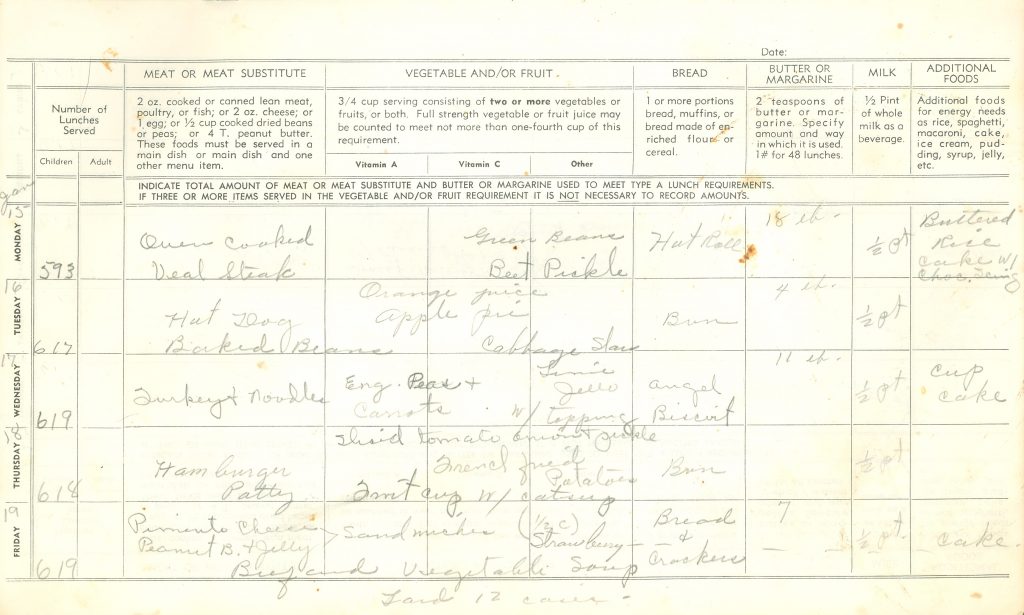 Date:
MEAT OR MEAT SUBSTITUTE
VEGETABLE AND/OR FRUIT
BREAD
BUTTER OR
MARGARINE
MILK
ADDITIONAL
FOODS
Number of
Lunches
Served
Children
Adult
2 oz. cooked or canned lean meat,
poultry, or fish; or 2 oz. cheese; or
1 egg; or ½ cup cooked dried beans
or peas; or 4 T. peanut butter.
These foods must be served in a
main dish or main dish and one
other menu item.
3/4 cup serving consisting of two or more vegetables or
fruits, or both. Full strength vegetable or fruit juice may
be counted to meet not more than one-fourth cup of this
requirement.
Vitamin A
Vitamin C
Other
1 or more portions
bread, muffins, or
bread made of en-
riched flour or
cereal.
2 teaspoons of
butter or mar-
garine. Specify
amount and way
in which it is used.
1# for 48 lunches.
½ Pint
of whole
milk as a
beverage.
Additional foods
for energy needs
as rice, spaghetti,
macaroni, cake,
ice cream, pud-
ding, syrup, jelly,
etc.
INDICATE TOTAL AMOUNT OF MEAT OR MEAT SUBSTITUTE AND BUTTER OR MARGARINE USED TO MEET TYPE A LUNCH REQUIREMENTS.
IF THREE OR MORE ITEMS SERVED IN THE VEGETABLE AND/OR FRUIT REQUIREMENT IT IS NOT NECESSARY TO RECORD AMOUNTS.
Jan
15
MONDAY
593
Oven cooked
Veal Steak
Green Beans
Beet Pickle
Hot Roll
18 lb.
½ pt
Buttered
Rice
cake w/
Choc. Icing
16
TUESDAY
617
Hot Dog
Baked Beans
Orange juice
Apple pie
Cabbage Slaw
Bun
4 lb.
½ pt
17
WEDNESDAY
619
Turkey & Noodles
Eng. Peas &
Carrots
Lime
Jello
w/ topping
Angel
Biscuit
11 lb.
½ pt
cup
cake
18
THURSDAY
618
Hamburger
Patty
Slisid tomato onion & pickle
French fried
Potatoes
Fruit cup w/ catsup
Bun
½ pt
19
FRIDAY
619
Pimento Cheese
Peanut B. & Jelly
Sandwiches
(½ c)
Strawberry
Beef and Vegetable Soup
Bread
&
Crackers
7
½ pt.
cake
Lard 12 cans